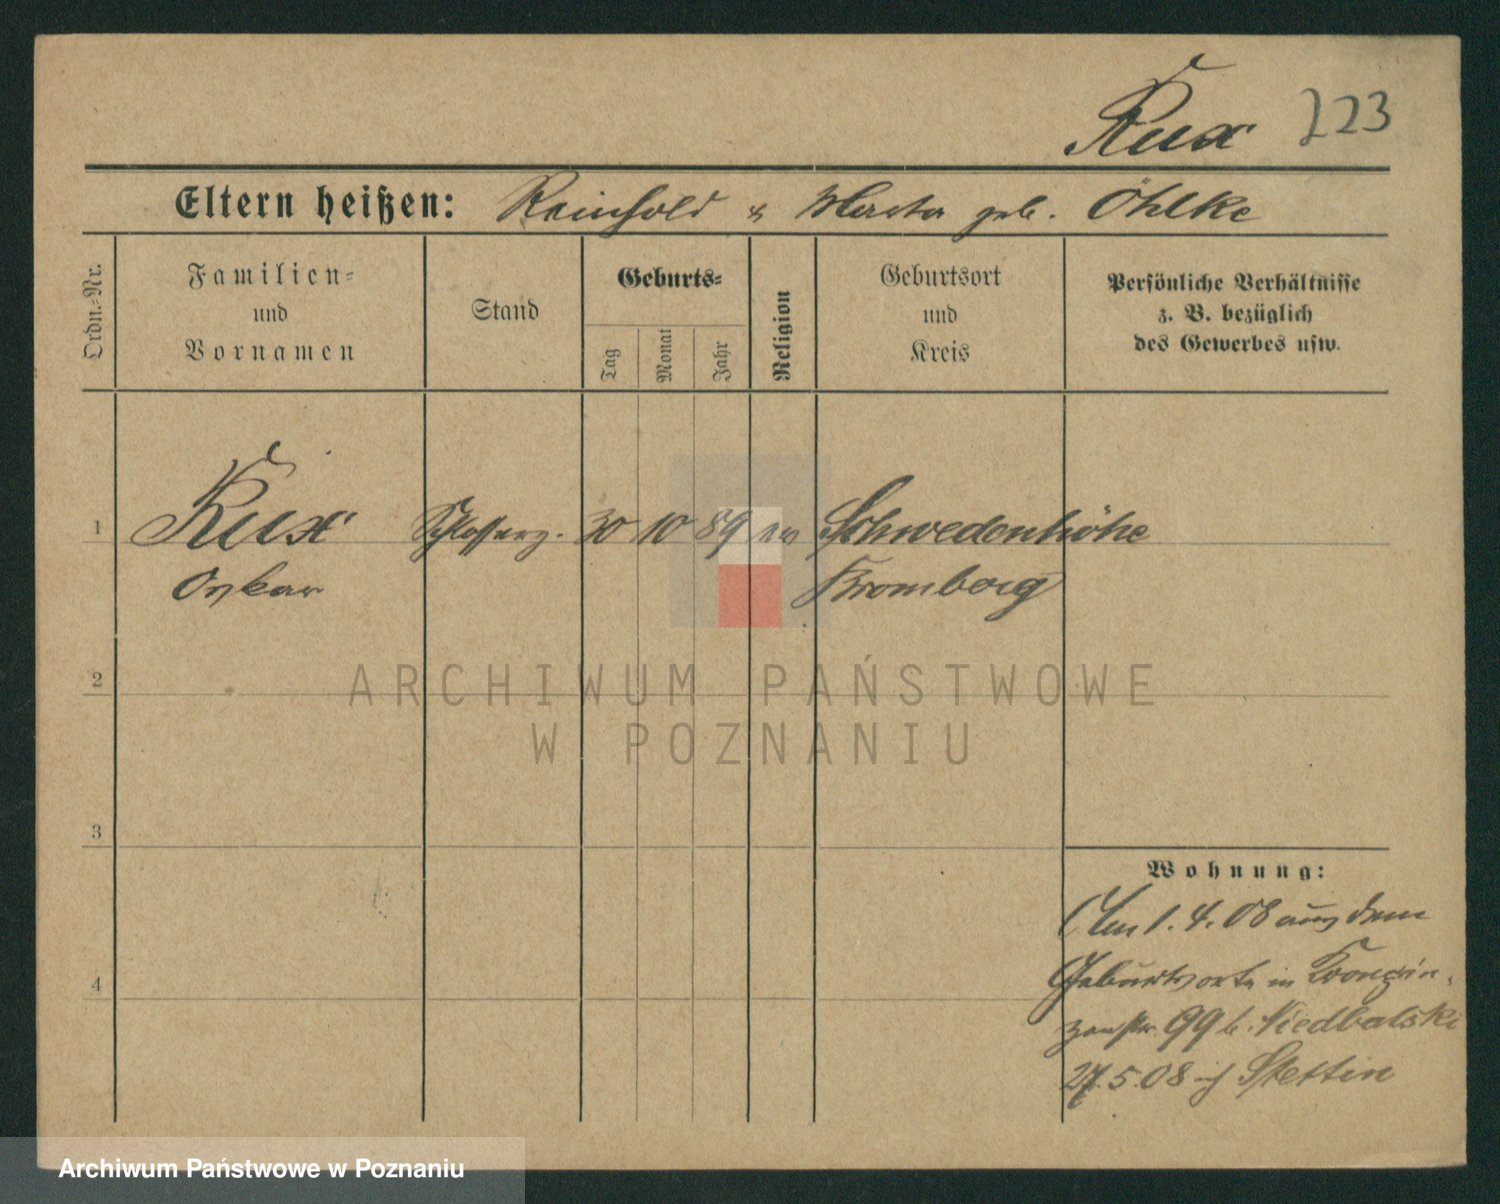 Kux 223
Eltern heißen: Reinhold & Marta geb. Öhlke
Ordn.-Nr.
Familien-
und
Vornamen
Stand
Geburts-
Tag
Monat
Jahr
Religion
Geburtsort
und
Kreis
Persönliche Verhältnisse
z. B. bezüglich
des Gewerbes usw.
1 Kux Schlosserg. 30 10 89 ev Schwedenhöhe
Oskar Bromberg
2
ARCHIWUM PAŃSTWOWE
W POZNANIU
3
Wohnung:
Am 1.4.08 aus dem
Geburtsorte in Kronprin-
4
zenstr. 99 b. Niedbalski
27.5.08 n/ Stettin
Archiwum Państwowe w Poznaniu